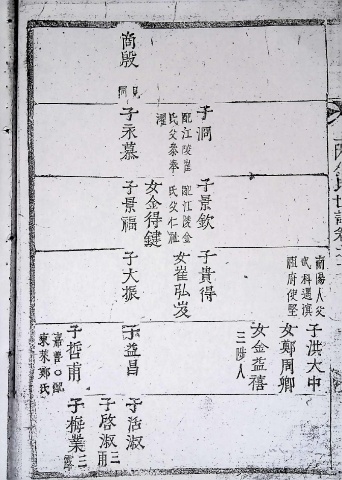 金氏世譜卷
商殷
子洞
配江陵崔
氏父參奉
濯
子永慕
子景欽
配江陵金
氏父仁祉
女金得鍵
子景福
南陽人父
武科
祖府使堅
子貴得
女崔弘岌
子大振
子洪大中
女鄭周卿
女金益禧
三陟人
子益昌
子哲甫
嘉善○配
東萊鄭氏
子活淑
子啓淑
子梅業